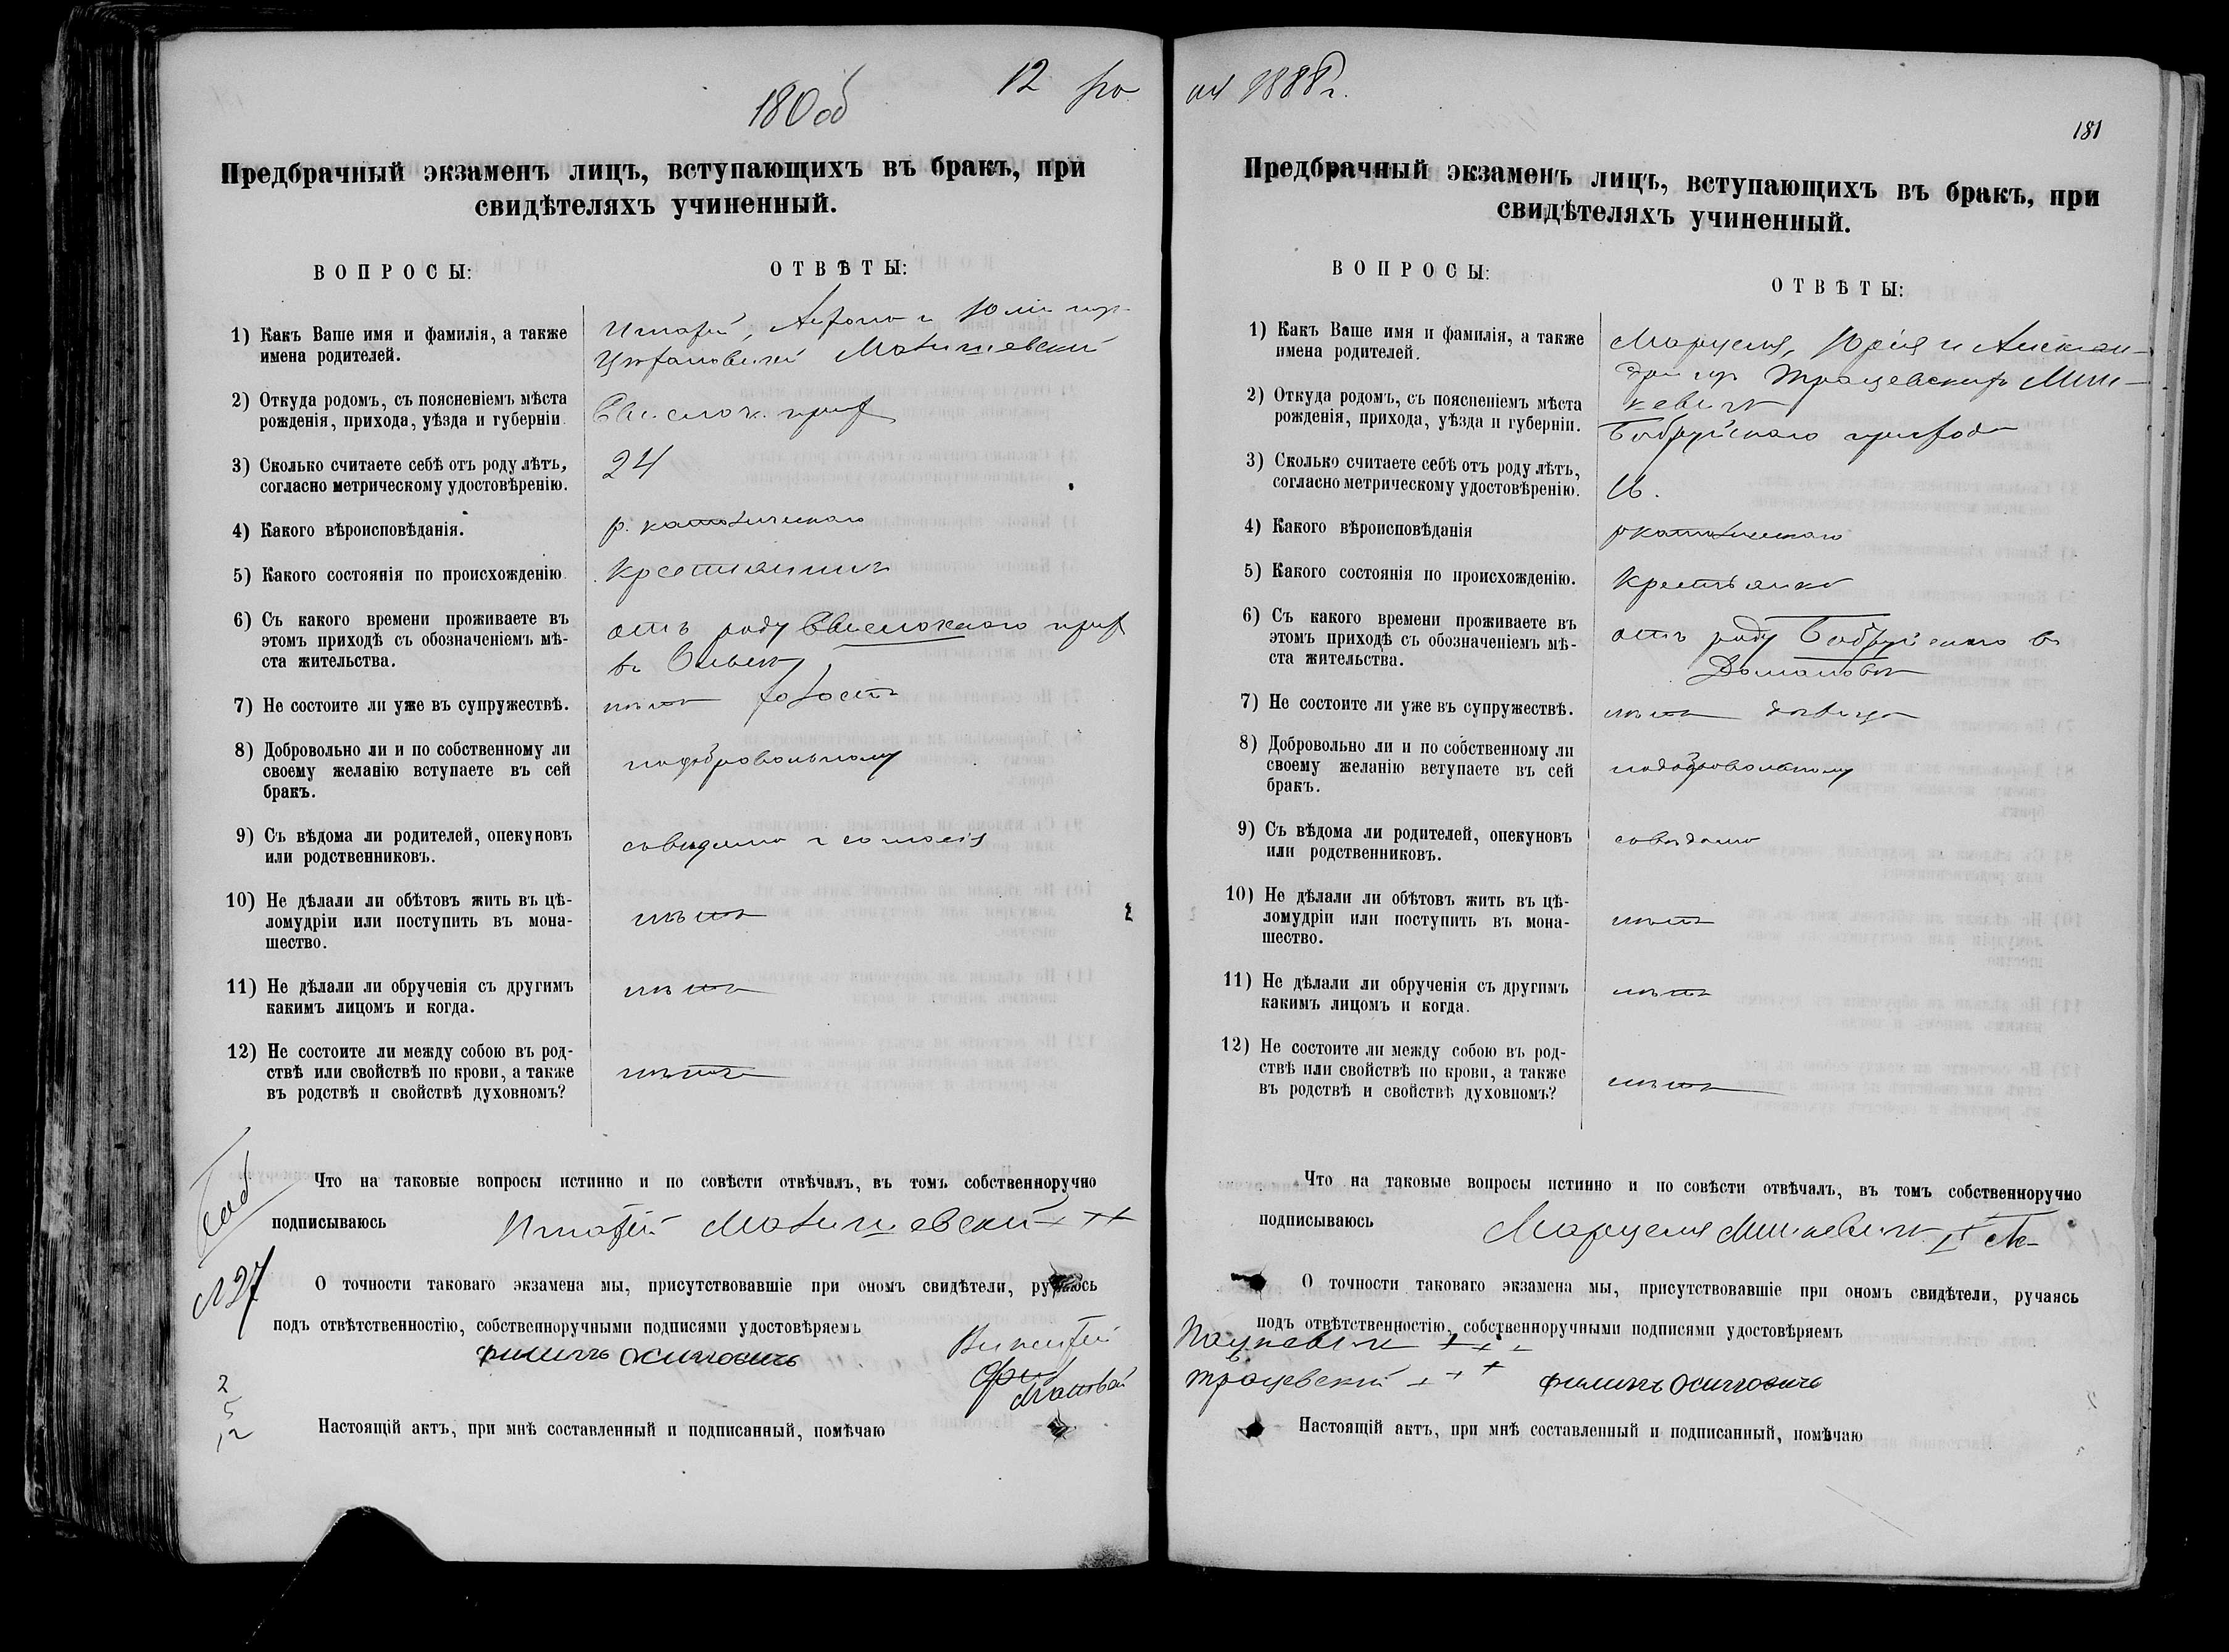 180 об
12
Предбрачный экзаменъ лицъ, вступающихъ въ бракъ, при
свидѣтеляхъ учиненный.
ВОПРОСЫ:
ОТВѢТЫ:
1) Какъ Ваше имя и фамилія, а также
имена родителей.
Юліи
2) Откуда родомъ, съ поясненіемъ мѣста
рожденія, прихода, уѣзда и губерніи.
3) Сколько считаете себѣ отъ роду лѣтъ,
согласно метрическому удостовѣренію.
24
4) Какого вѣроисповѣданія.
р. католическаго
5) Какого состоянія по происхожденію
Крестянинъ
6) Съ какого времени проживаете въ
этомъ приходѣ съ обозначеніемъ мѣ-
ста жительства.
отъ роду Свислокскаго
въ
7) Не состоите ли уже въ супружествѣ.
нѣтъ холостъ
8) Добровольно ли и по собственному ли
своему желанію вступаете въ сей
бракъ.
подобровольному
9) Съ вѣдома ли родителей, опекуновъ
или родственниковъ.
10) Не дѣлали ли обѣтовъ жить въ цѣ-
ломудріи или поступить въ мона-
шество.
нѣтъ
11) Не дѣлали ли обрученія съ другимъ
какимъ лицомъ и когда.
нѣтъ
12) Не состоите ли между собою въ род-
ствѣ или свойствѣ по крови, а также
въ родствѣ и свойствѣ духовномъ?
нѣтъ
Что на таковые вопросы истинно и по совѣсти отвѣчалъ, въ томъ собственноручно
подписываюсь
Игнатій +++
№27
О точности таковаго экзамена мы, присутствовавшіе при ономъ свидѣтели, ручаясь
подъ отвѣтственностію, собственноручными подписями удостовѣряемъ
Филипъ Осиповичъ
Викентій
2
5
12
Настоящій актъ, при мнѣ составленный и подписанный, помѣчаю
1888 г.
181
Предбрачный экзаменъ лицъ, вступающихъ въ бракъ, при
свидѣтеляхъ учиненный.
ВОПРОСЫ:
ОТВѢТЫ:
1) Какъ Ваше имя и фамилія, а также
имена родителей.
Марцеля, Юрія и Алексан-
дры Трацевскихъ Мин-
кевичъ
2) Откуда родомъ, съ поясненіемъ мѣста
рожденія, прихода, уѣзда и губерніи.
Бобруйскаго прихода
3) Сколько считаете себѣ отъ роду лѣтъ,
согласно метрическому удостовѣренію.
4) Какого вѣроисповѣданія
р католическаго
5) Какого состоянія по происхожденію.
Крестьянка
6) Съ какого времени проживаете въ
этомъ приходѣ съ обозначеніемъ мѣ-
ста жительства.
отъ роду Бобруйскаго въ
7) Не состоите ли уже въ супружествѣ.
нѣтъ дѣвица
8) Добровольно ли и по собственному ли
своему желанію вступаете въ сей
бракъ.
подобровольному
9) Съ вѣдома ли родителей, опекуновъ
или родственниковъ.
10) Не дѣлали ли обѣтовъ жить въ цѣ-
ломудріи или поступить въ мона-
шество.
нѣтъ
11) Не дѣлали ли обрученія съ другимъ
какимъ лицомъ и когда.
нѣтъ
12) Не состоите ли между собою въ род-
ствѣ или свойствѣ по крови, а также
въ родствѣ и свойствѣ духовномъ?
нѣтъ
Что на таковые вопросы истинно и по совѣсти отвѣчалъ, въ томъ собственноручно
подписываюсь
Марцеля Минкевичъ
О точности таковаго экзамена мы, присутствовавшіе при ономъ свидѣтели, ручаясь
подъ отвѣтственностію, собственноручными подписями удостовѣряемъ
+++
Трацевскій +++
Филипъ Осиповичъ
Настоящій актъ, при мнѣ составленный и подписанный, помѣчаю